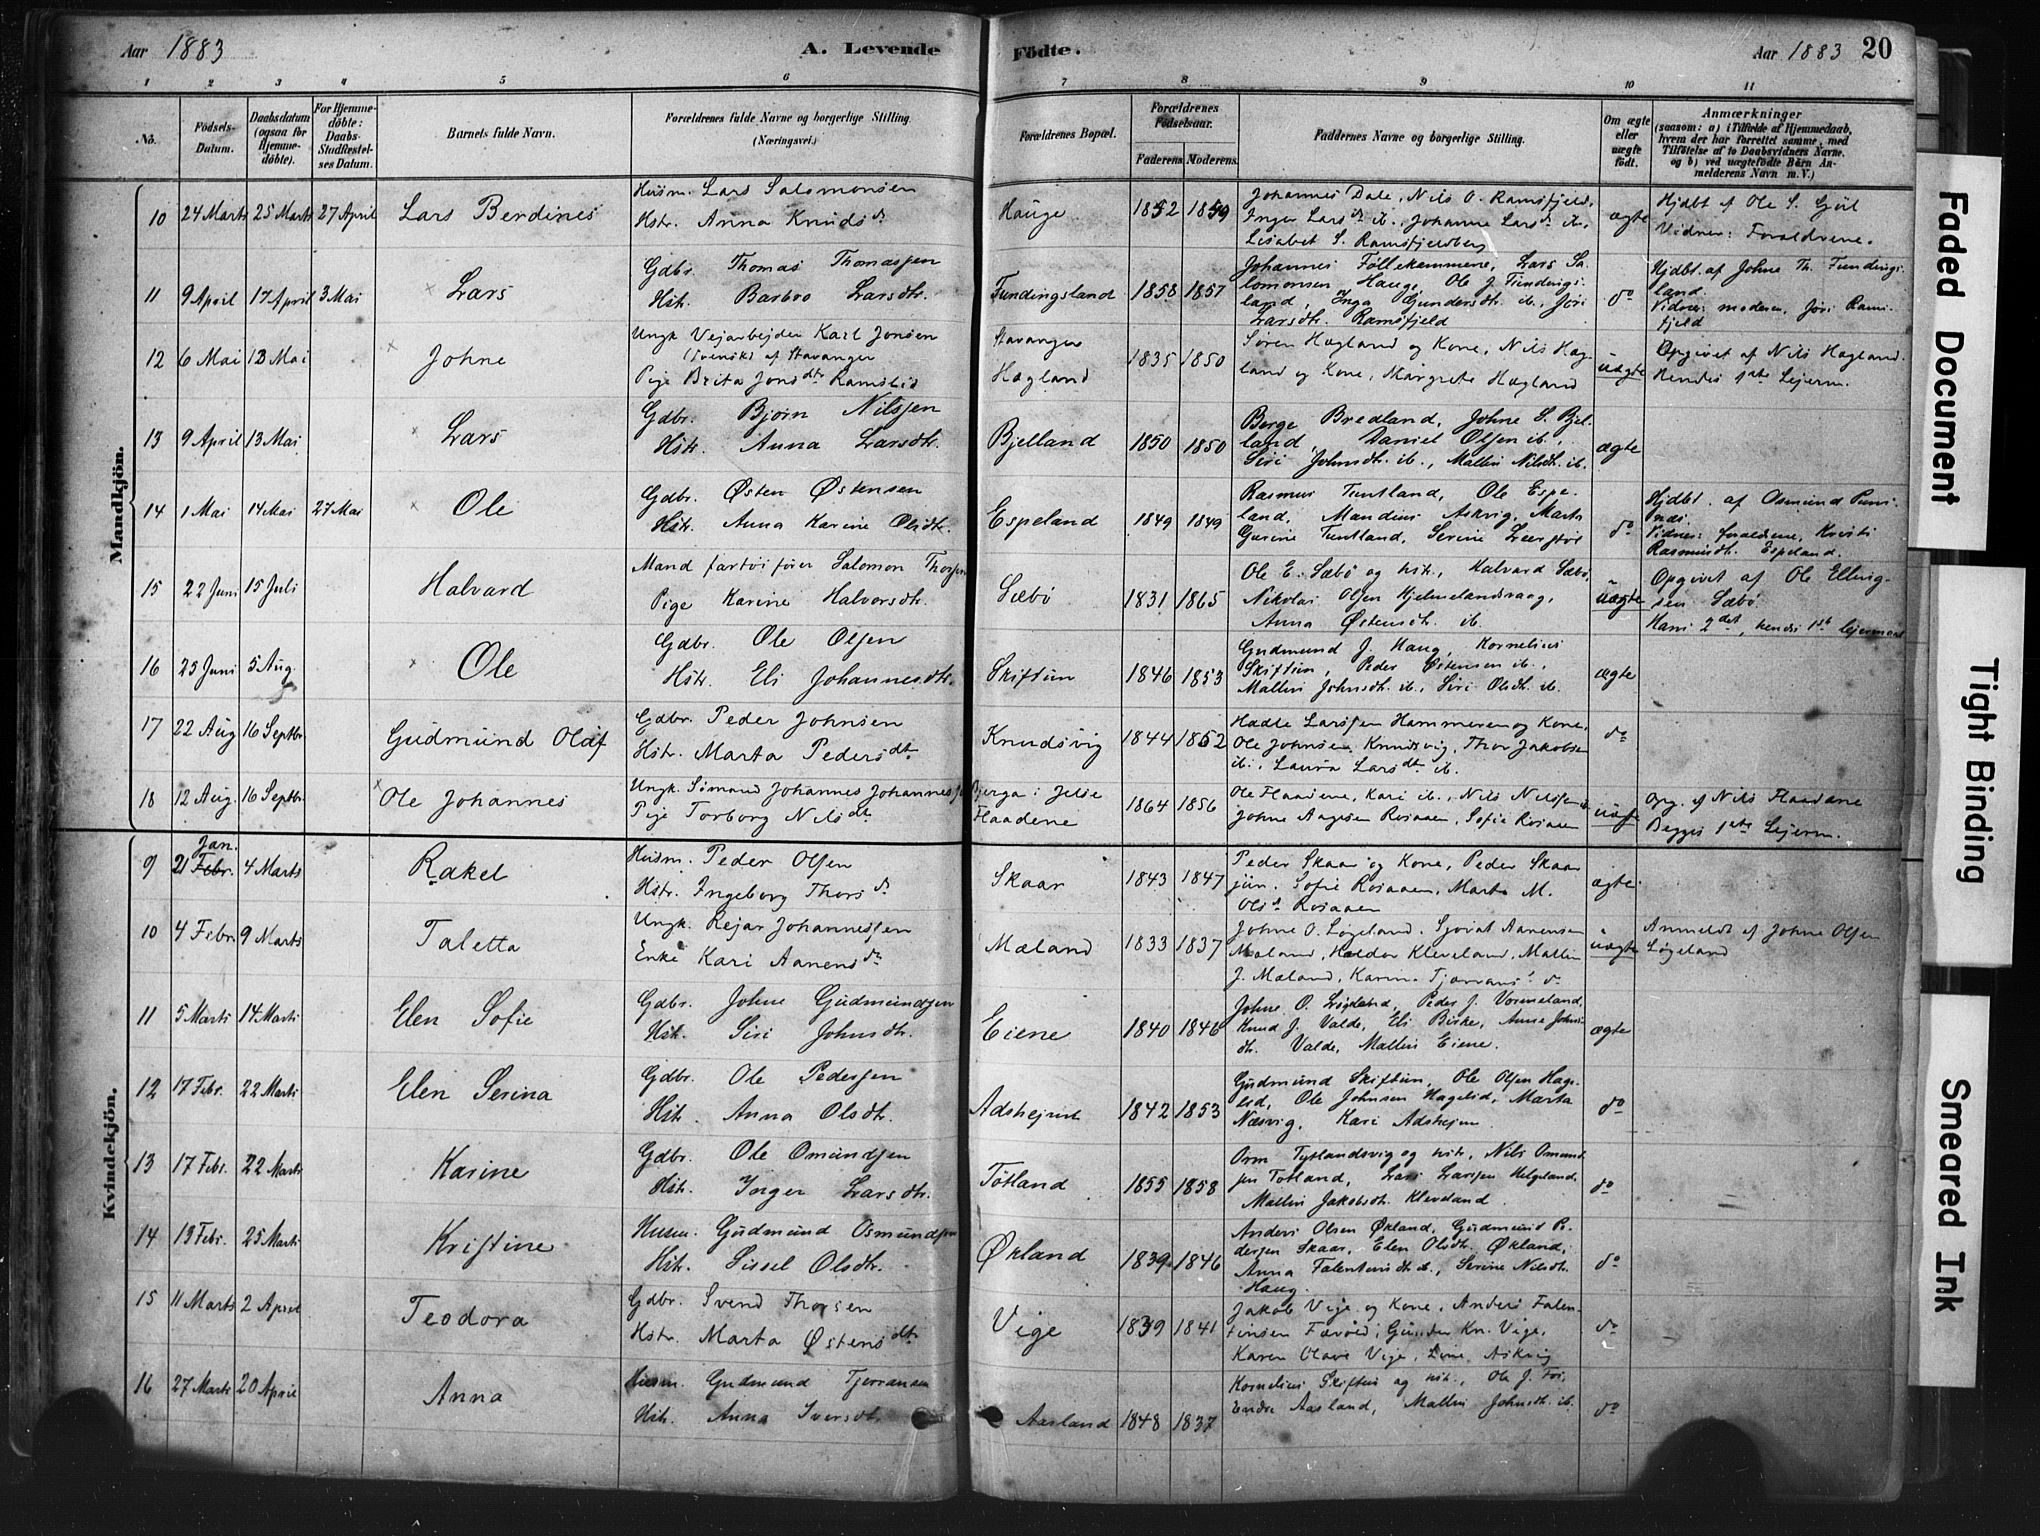 Aar 1883
A. Levende
1 2 3 4 5 6
No.
Födsels-
Datum.
Daabsdatum
(ogsaa for
Hjemme-
döbte).
For Hjemme-
döbte:
Daabs-
Stadfæstel-
ses Datum.
Barnets fulde Navn.
Forældrenes fulde Navne og borgerlige Stilling.
(Næringsvei.)
Födte.
Aar 1883 20
7 8 9 10 11
Forældrenes Bopæl.
Forældrenes
Födselsaar.
Faderens. Moderens.
Faddernes Navne og borgerlige Stilling.
Om ægte
eller
uægte
födt.
Anmærkninger
(saasom: a) i Tilfælde af Hjemmedaab,
hvem der har forrettet samme, med
Tilföielse af to Daabsvidners Navne,
og b) ved uægtefödte Börn An-
melderens Navn m. V.)
Mandkjön.
10 24 Marts 25 Marts 27 April Lars Berdines
Husm. Lars Salomonsen
Hstr. Anna Knudsd.
Hauge 1852 1859
Johannes Dale, Nils O. Ramsfjeld,
Inger Larsd. ib., Johanne Larsd. ib.,
Lisabet S. Ramsfjeldberg
ægte
Hjdbt af Ole S.
Vidner: Forældrene.
11 9 April 17 April 3 Mai Lars
Gdbr. Thomas Thomassen
Hstr. Barbro Larsdtr.
Fundingsland 1858 1857
Johannes Föllekammene, Lars Sa-
lomonsen Hauge, Ole J. Fundings-
land, Inga Gundersdtr. ib., Jöri
Larsdtr. Ramsfjeld
do
Hjdbt. af Johne Th. Fundings-
land.
Vidner: moderen, Jöri Rams-
fjeld
12 6 Mai 13 Mai Johne
Ungk. Vejarbejder Karl Jonsen
(svensk) af Stavanger
Pige Brita Jonsdtr. Ramslid
Stavanger
Hagland 1835 1850
Sören Hagland og Kone, Nils Hag-
land og Kone, Margrete Hagland
uægte
Opgivet af Nils Hagland.
Hendes 1ste Lejerm.
13 9 April 13 Mai Lars
Gdbr. Björn Nilssen
Hstr. Anna Larsdtr.
Bjelland 1850 1850
Börge Bredland, Johne S. Bjel-
land, Daniel Olsen ib.,
Siri Johnsdtr. ib., Malleni Nilsdtr. ib.
ægte
14 1 Mai 14 Mai 27 Mai Ole
Gdbr. Østen Østensen
Hstr. Anna Karine Olsdtr.
Espeland 1849 1849
Rasmus Tuntland, Ole Espe-
land, Mandius Askvig, Marta
Gurine Tuntland, Serine
do
Hjdbt. af Osmund
Vidner: forældrene, Kristi
Rasmusdtr. Espeland.
15 22 Juni 15 Juli Halvard
Mand fartöiförer Salomon Thorsen
Pige Karine Halvorsdtr.
Sæbö 1831 1865
Ole E. Sæbö og hstr., Halvard Sæbö,
Nikolai Olsen Hjelmelandsvaag,
Anna Østensdtr. ib.
uægte
Opgivet af Ole Elling-
sen Sæbö
Hans 2det, hendes 1ste lejermaal
16 25 Juni 5 Aug. Ole
Gdbr. Ole Olsen
Hstr. Eli Johannesdtr.
Skiftun 1846 1853
Gudmund J. Haug, Kornelius
Skiftun, Peder Østensen ib.,
Malleni Johnsdtr. ib., Siri Olsdtr. ib.
ægte
17 22 Aug 16 Septbr. Gudmund Olaf
Gdbr. Peder Johnsen
Hstr. Marta Pedersdtr.
Knudsvig 1844 1852
Hadle Larssen Hammeren og Kone,
Ole Johnsen Knudsvig, Thor Jakobsen
ib., Laura Larsdtr. ib.
do
18 12 Aug. 16 Septbr. Ole Johannes
Ungk. Simand Johannes Johannessen
Pige Torborg Nilsdt.
Bjerga i Jelse
Flaadene 1864 1856
Ole Flaadene, Kari ib., Nils Nilssen ib.
Johne Aagesen Rosaaen, Sofie Rosaaen
uægte
Opg. af Nils Flaadene
Begges 1ste Lejerm.
Kvindekjön.
9 21 Jan. Febr. 4 Marts Rakel
Husm. Peder Olsen
Hstr. Ingeborg Thorsd.
Skaar 1843 1847
Peder Skaar og Kone, Peder Skaar
jun. Sofie Rosaaen, Marta M.
Olsd. Rosaaen
ægte
10 4 Febr. 9 Marts Taletta
Ungk. Rejar Johannessen
Enke Kari Aanensd.
Mæland 1833 1837
Johne O. Løgeland, Sjovat Aanensen
Mæland, Haldor Kleveland, Mallin
J. Mæland, Karin
uægte
Anmeldt af Johne Olsen
Løgeland
11 5 Marts 14 Marts Elen Sofie
Gdbr. Johne Gudmundsen
Hstr. Siri Johnsdtr.
Eiene 1840 1846
Johne O. Løgland, Peder J. Vormeland,
Knud J. Valde, Eli Biske, Anna Johns-
dtr. Valde, Malleni Eiene.
ægte
12 17 Febr. 22 Marts Elen Serina
Gdbr. Ole Pedersen
Hstr. Anna Olsdtr.
Adshejm 1842 1853
Gudmund Skiftun, Ole Olsen Hage-
lid, Ole Johnsen Hagelid, Marta
Næsvig, Kari Adshejm
do
13 17 Febr. 22 Marts Karine
Gdbr. Ole Omundsen
Hstr. Inger Larsdtr.
Tötland 1855 1858
Orm Tytlandsvig og hstr., Nils Omund-
sen Tötland, Lars Larssen Helgeland,
Malleni Jakobsdtr. Kleveland
do
14 13 Febr. 25 Marts Kristine
Husm. Gudmund Osmundsen
Hstr. Sissel Olsdtr.
Økland 1839 1846
Anders Olsen Økland, Gudmund Pe-
dersen Skaar, Elen Olsdtr. Økland,
Anna Falentinsdtr. ib., Serine Nilsdtr.
Haug.
do
15 11 Marts 2 April Teodora
Gdbr. Svend Thorsen
Hstr. Marta Østensdtr.
Vige 1839 1841
Jakob Vige og Kone, Anders Falen-
tinsen, Gunder Kn. Vige,
Karen Olave Vige, Line Askvig
do
16 27 Marts 20 April Anna
Husm. Gudmund Tjerransen
Hstr. Anna Iversdtr.
Aasland 1848 1837
Kornelius Skiftun og hstr., Ole J.
Endre Aasland, Malleni Johnsdtr. ib.
do
Faded Document
Tight Binding
Smeared Ink